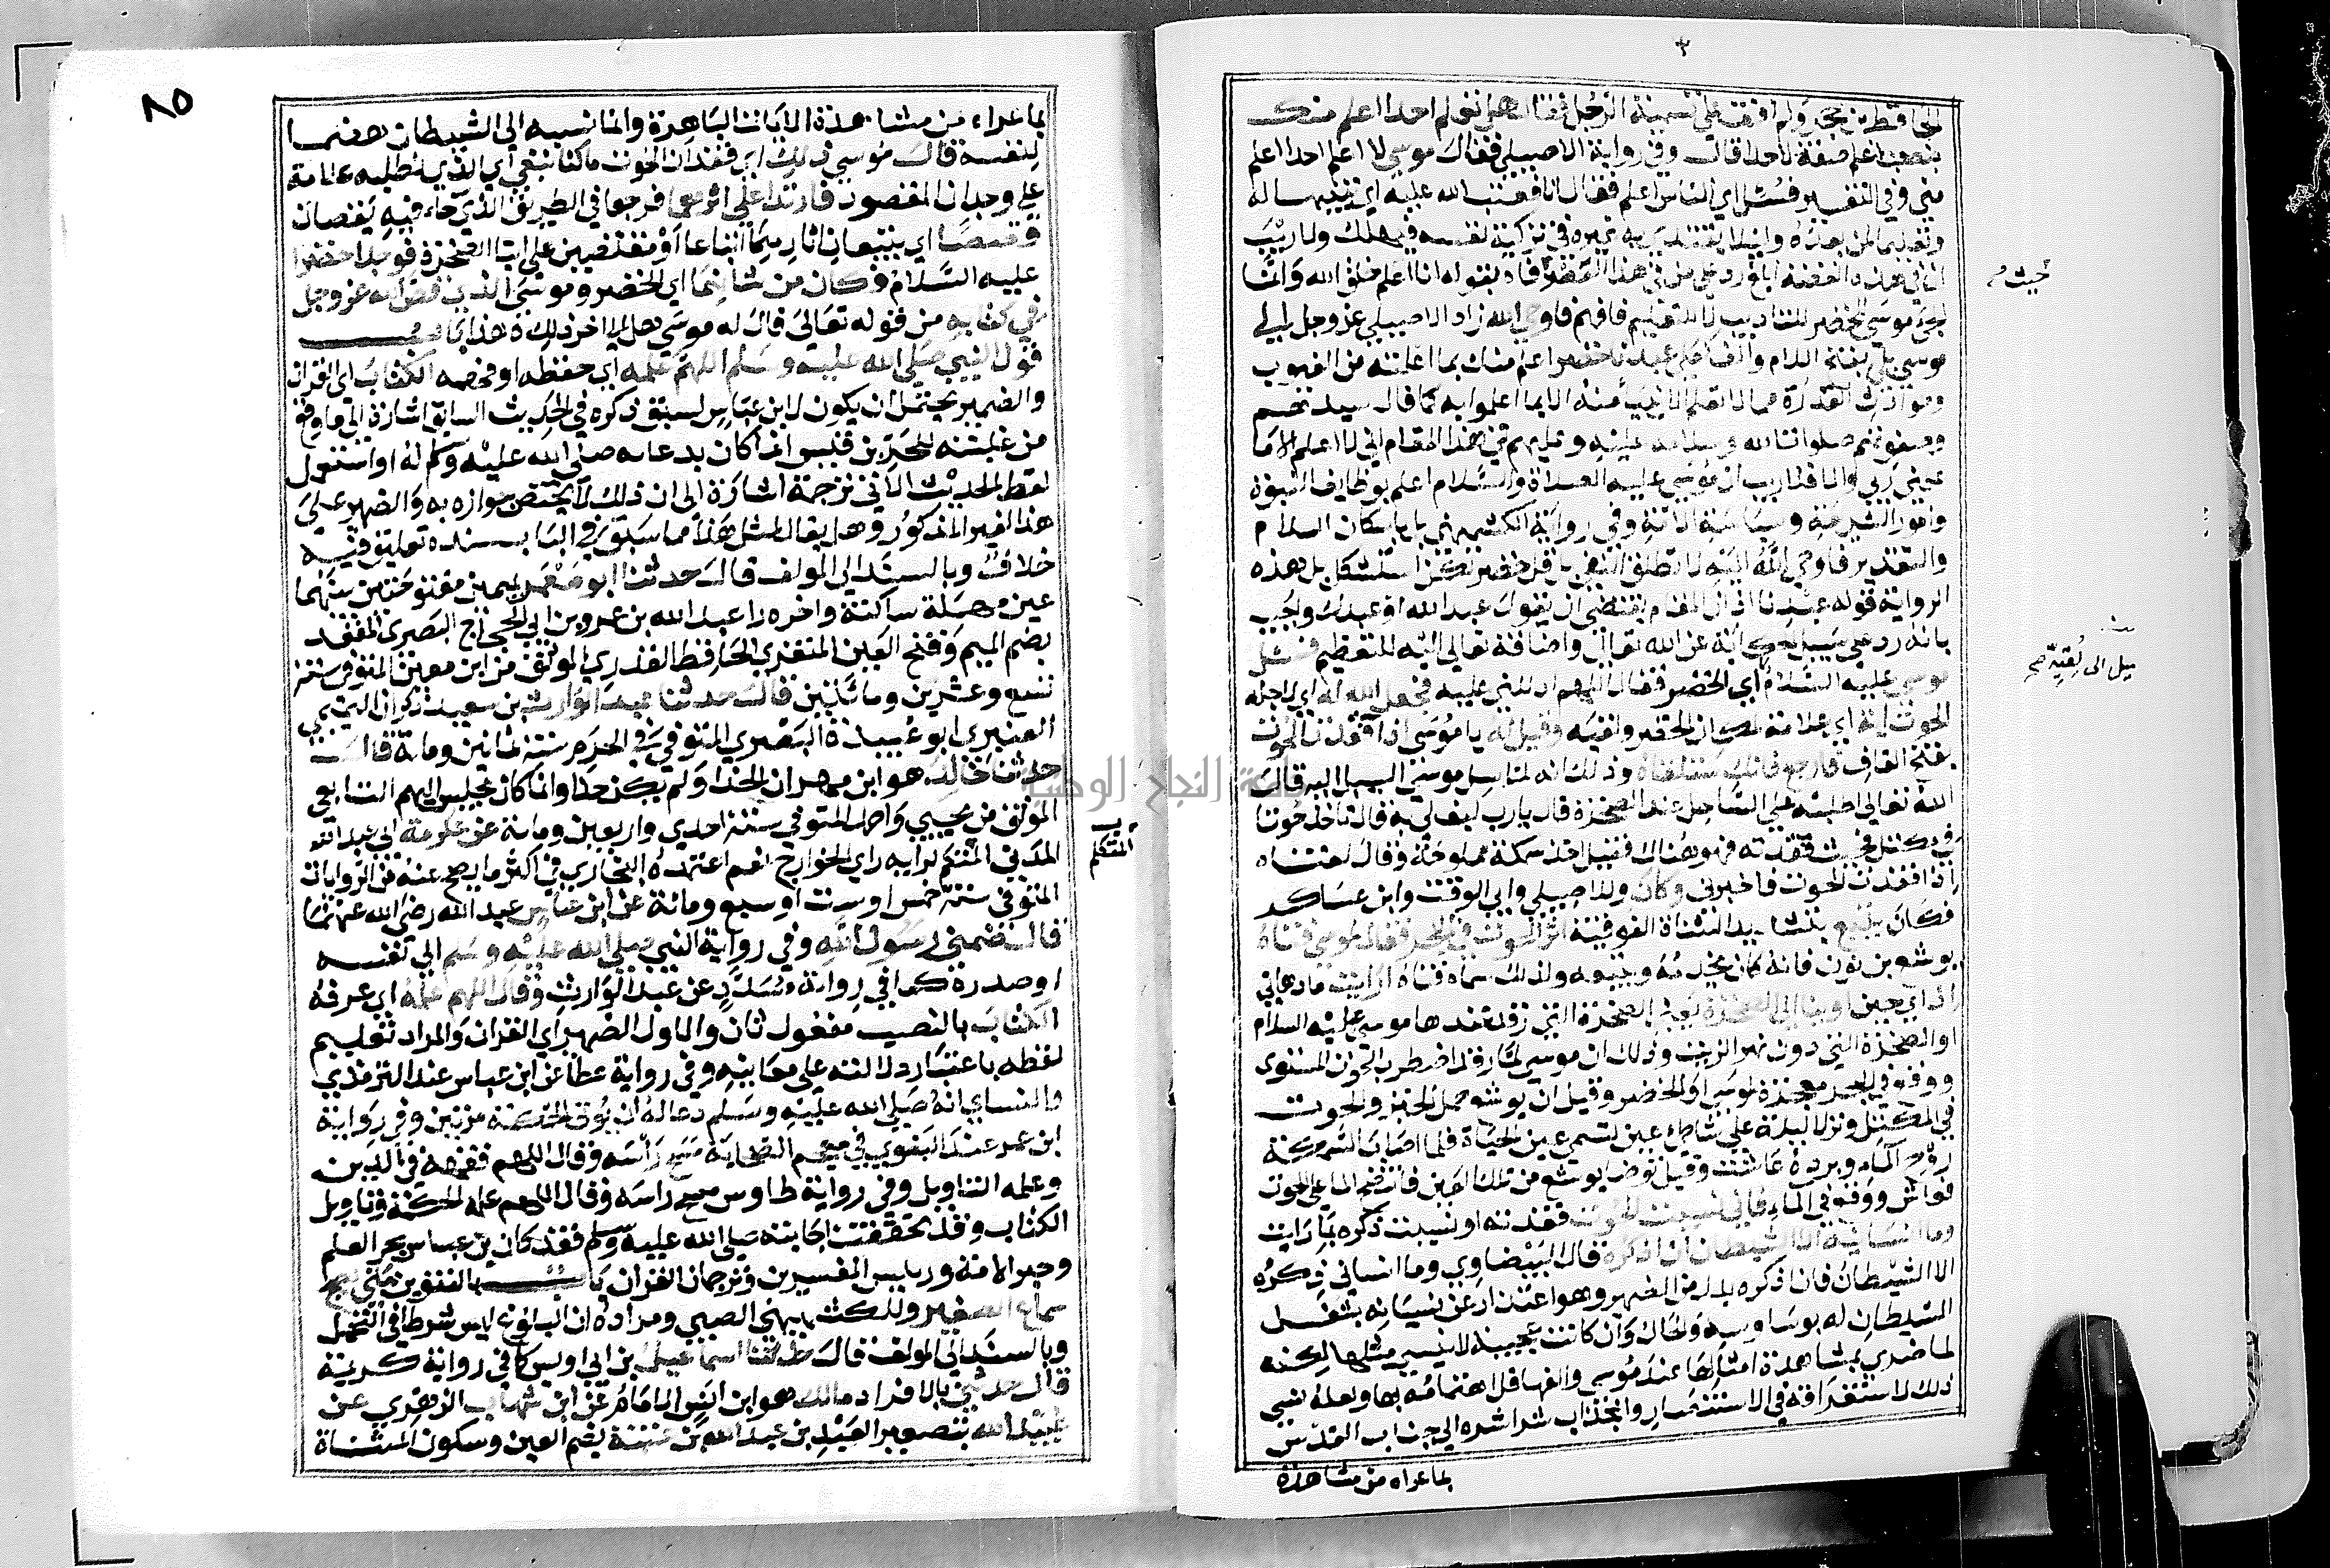 الحافظ بن حجر ولم اقف على تسمية الرجل فقال هل تعلم احدا اعلم منك
بنصب اعلم صفة لاحدا قال وفي رواية الاصيلي فقال موسى لا اعلم احدا اعلم
مني وفي التفسير فسئل اي الناس اعلم فقال انا فعتب الله عليه اي تنبيها له
وتعليما لمن بعده وليلا يقتدي به غيره في تزكية نفسه فيهلك ولا ريب
ان في هذه القصة ابلغ رد على من في هذا العصر فاه بقوله انا اعلم خلق الله وانما
الجئ موسى للخضر للتاديب لا للتعليم فافهم فاوحى الله زاد الاصيلي عز وجل الى
موسى بلى بفتح اللام والف على عبدنا خضر اعلم منك بما اعلمته من الغيوب
وحوادث القدرة مما لا تعلم الانبياء منه الا ما اعلموا به كما قال سيدهم
وصفوتهم صلوات الله وسلامه عليه وعليهم في هذا المقام اني لا اعلم الا ما
علمني ربي والا فلا ريب ان موسى عليه الصلاة والسلام اعلم بوظايف النبوة
وامور الشريعة وسياسة الامة وفي رواية الكشميهني بل باسكان اللام
والتقدير فاوحى الله اليه لا تطلق النفي بل قل خضر لكن استشكل بل هذه
الرواية قوله عبدنا اذ ان المقام يقتضي ان يقول عبد الله او عبدك واجيب
بانه ورد على سبيل الحكاية عن الله تعالى واضافه تعالى اليه للتعظيم فسئل
موسى عليه السلام اي الخضر فقال اللهم ادللني عليه فجعل الله له اي لاجله
الحوت اية اي علامة لمكان الخضر ولقيه وقيل له يا موسى اذا فقدت الحوت
بفتح القاف فارجع فانك ستلقاه وذلك انه لما سال موسى السبيل اليه قال
الله تعالى اطلبه على الساحل عند الصخرة قال يا رب كيف لي به قال تاخذ حوتا
في مكتل فحيث فقدته فهو هناك فقيل اخذ سمكة مملوحة وقال لفتاه
اذا فقدت الحوت فاخبرني وكان وللاصيلي وابي الوقت وابن عساكر
فكان يتبع بتشديد المثناة الفوقية اثر الحوت في البحر فقال لموسى فتاه
يوشع بن نون فانه كان يخدمه ويتبعه ولذلك سماه فتاه ارايت ما دهاني
اذ اي حين اوينا الى الصخرة يعني الصخرة التي رقد عندها موسى عليه السلام
او الصخرة التي دون نهر الزيت وذلك ان موسى لما رقد اضطرب الحوت المشوي
ووقع في البحر معجزة لموسى او الخضر وقيل ان يوشع حمل الخبز والحوت
في المكتل ونزلا ليلة على شاطئ عين تسمى عين الحياة فلما اصاب السمكة
روح الماء وبرده عاشت وقيل توضا يوشع من تلك العين فانتضح الماء على الحوت
فعاش ووقع في الماء فاني نسيت الحوت فقدته او نسيت ذكره بما رايت
وما انسانيه الا الشيطان ان اذكره قال البيضاوي وما انساني ذكره
الا الشيطان فان اذكره بدل من الضمير وهو اعتذار عن نسيانه بشغل
الشيطان له بوساوسه والحال وان كانت عجيبة لا ينسى مثلها لكنه
لما ضري بمشاهدة امثالها عند موسى والفها قل اهتمامه بها ولعله نسي
ذلك لاستغراقه في الاستبصار وانجذاب شراشره الى جناب القدس
بما عراه من مشاهدة
حيث
بيل الى لقيه صح
٨٥
بما عراه من مشاهدة الايات الباهرة وانما نسبه الى الشيطان هضما
لنفسه قال موسى ذلك اي فقدان الحوت ما كنا نبغي اي الذي نطلبه علامة
على وجدان المقصود فارتدا على اثارهما فرجعا في الطريق الذي جاء فيه يقصان
قصصا اي يتبعان اثارهما اتباعا او مقتصين حتى اتيا الصخرة فوجدا خضرا
عليه السلام فكان من شانهما اي الخضر وموسى الذي قص الله عز وجل
في كتابه من قوله تعالى قال له موسى هل الى اخر ذلك هذا باب
قول النبي صلى الله عليه وسلم اللهم علمه اي حفظه او فهمه الكتاب اي القران
والضمير يحتمل ان يكون لابن عباس لسبق ذكره في الحديث السابق اشارة الى ما وقع
من غلبته للحر بن قيس انما كان بدعائه صلى الله عليه وسلم له او استعمل
لفظ الحديث الاتي ترجمة اشارة الى ان ذلك لا يختص جوازه به والضمير على
هذا لغير المذكور وهل يقال لمثل هذا مما سبق في الباب سنده تعليق فيه
خلاف وبالسند الى المولف قال حدثنا ابو معمر بميمين مفتوحتين بينهما
عين مهملة ساكنة واخره را عبد الله بن عمرو بن ابي الحجاج البصري المقعد
بضم الميم وفتح العين المنقري الحافظ القدري الموثق من ابن معين المتوفى سنة
تسع وعشرين ومائتين قال حدثنا عبد الوارث بن سعيد بن ذكوان التميمي
العنبري ابو عبيدة البصري المتوفى في المحرم سنة ثمانين ومائة قال
حدثنا خالد هو ابن مهران الحذا ولم يكن حذا وانما كان يجلس اليهم التابعي
الموثق من يحيى واحمد المتوفى سنة احدى واربعين ومائة عن عكرمة ابي عبد الله
المدني المتكلم لرايه راي الخوارج نعم اعتمده البخاري في اكثر ما يصح عنه من الروايات
المتوفى سنة خمس او ست او سبع ومائة عن ابن عباس عبد الله رضي الله عنهما
قال ضمني رسول الله وفي رواية النبي صلى الله عليه وسلم الى نفسه
او صدره كما في رواية مسدد عن عبد الوارث وقال اللهم علمه اي عرفه
الكتاب بالنصب مفعول ثان والاول الضمير اي القران والمراد تعليم
لفظه باعتبار دلالته على معانيه وفي رواية عطا عن ابن عباس عند الترمذي
والنساي انه صلى الله عليه وسلم دعا له ان يؤتى الحكمة مرتين وفي رواية
ابن عمر عند البغوي في معجم الصحابة مسح راسه وقال اللهم فقهه في الدين
وعلمه التاويل وفي رواية طاوس مسح راسه وقال اللهم علمه الحكمة وتاويل
الكتاب وقد تحققت اجابته صلى الله عليه وسلم فقد كان ابن عباس بحر العلم
وحبر الامة ورييس المفسرين وترجمان القران باب بالتنوين متى يصح
سماع الصغير وللكشميهني الصبي ومراده ان البلوغ ليس شرطا في التحمل
وبالسند الى المولف قال حدثنا اسماعيل بن ابي اويس كما في رواية كريمة
قال حدثني بالافراد مالك هو ابن انس الامام عن ابن شهاب الزهري عن
عبيد الله بتصغير العبد بن عبد الله بن عتبة بضم العين وسكون المثناة
المتكلم
جامعة النجاح الوطنية